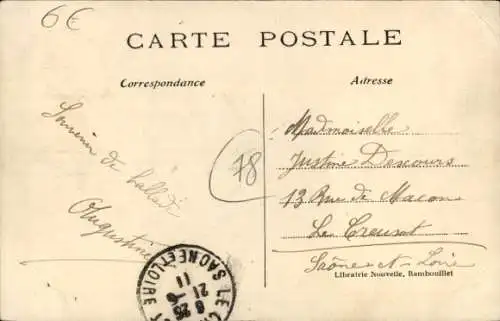 6€
CARTE POSTALE
Correspondance
Adresse
Souvenir de
Augustine
78
Mademoiselle
Justine Descours
13 Rue de Macon
Le Creusot
Saône-et-Loire
Librairie Nouvelle, Rambouillet
SAONE ET LOIRE
8 25
21-6
11